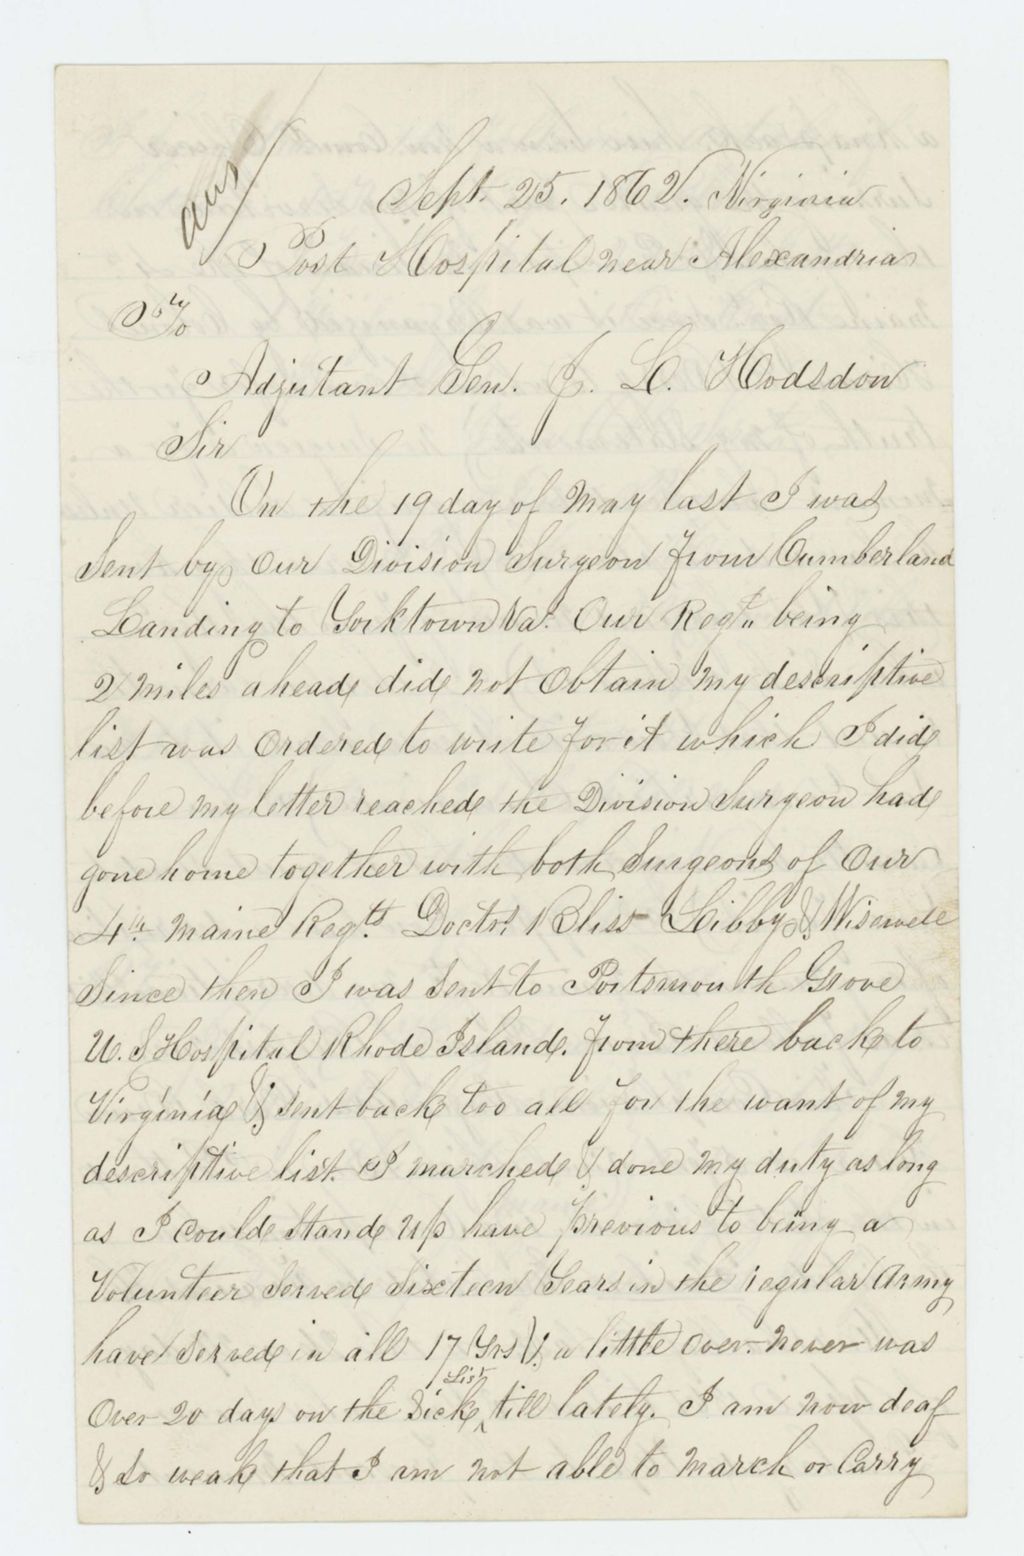 ans
Sept. 25. 1862. Virginia
Post Hospital near Alexandria
To
Adjutant Gen. J. L. Hodsdon
Sir
On the 19 day of May last I was
Sent by our Division Surgeon from Cumberland
Landing to Yorktown Va. Our Regt. being
2 miles ahead did not obtain my descriptive
list was ordered to write for it which I did
before my letter reached the Division Surgeon had
gone home together with both Surgeons of our
4th Maine Regts. Doctrs Bliss Libby & Wisewell
Since then I was sent to Portsmouth Grove
U. S Hospital Rhode Island. from there back to
Virginia & sent back too all for the want of my
descriptive list. I marched & done my duty as long
as I could Stand up have previous to being a
Volunteer Served Sixteen Years in the regular Army
have Served in all 17 Yrs & a little over. never was
Over 20 days on the Sick List till lately. I am now deaf
& so weak that I am not able to march or Carry